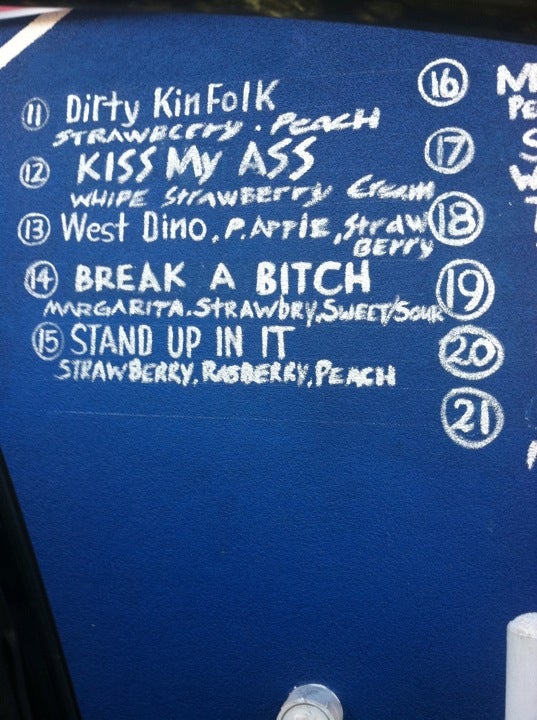 11 Dirty KinFolk
STRAWBERRY. PEACH
12 KISS My ASS
WHIPE STrAWBErry Cream
13 West Dino, P. APPIE, Straw
BERRY
14 BREAK A BITCH
MARGARITA. STRAWBRY, SWEET/SOUR
15 STAND UP IN IT
STRAWBERRY, RASBERRY, PEACH
16
17
18
19
20
21